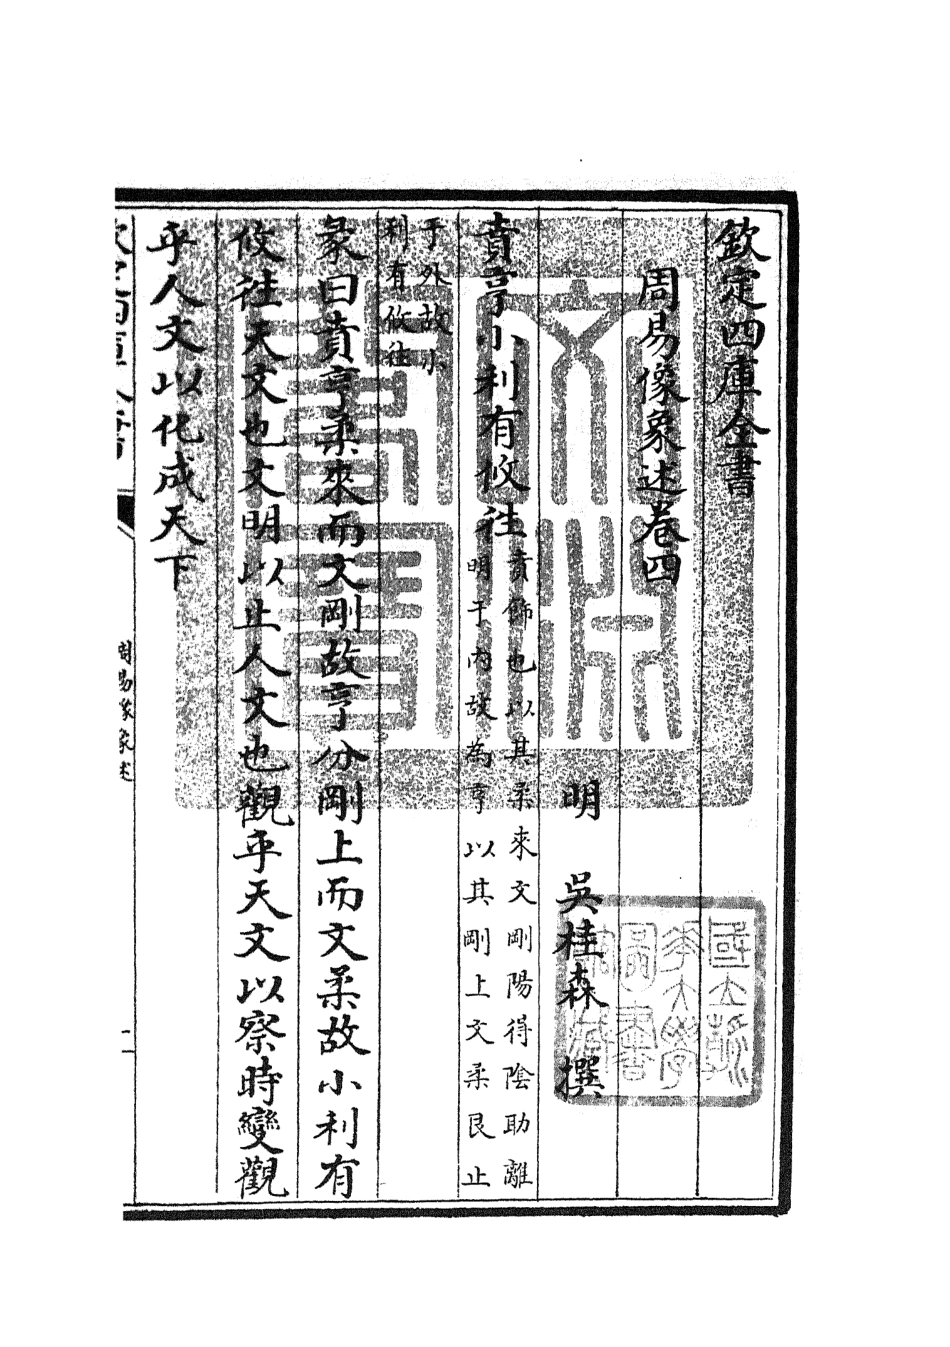 欽定四庫全書
周易像象述卷四
明 吳桂森 撰
賁亨小利有攸往
賁飾也以其柔來文剛陽得陰助離
明于內故為亨以其剛上文柔艮止
于外故小
利有攸往
彖曰賁亨柔來而文剛故亨分剛上而文柔故小利有
攸往天文也文明以止人文也觀乎天文以察時變觀
乎人文以化成天下
周易像象述
文淵閣寶
國立浙江大學圖書館藏